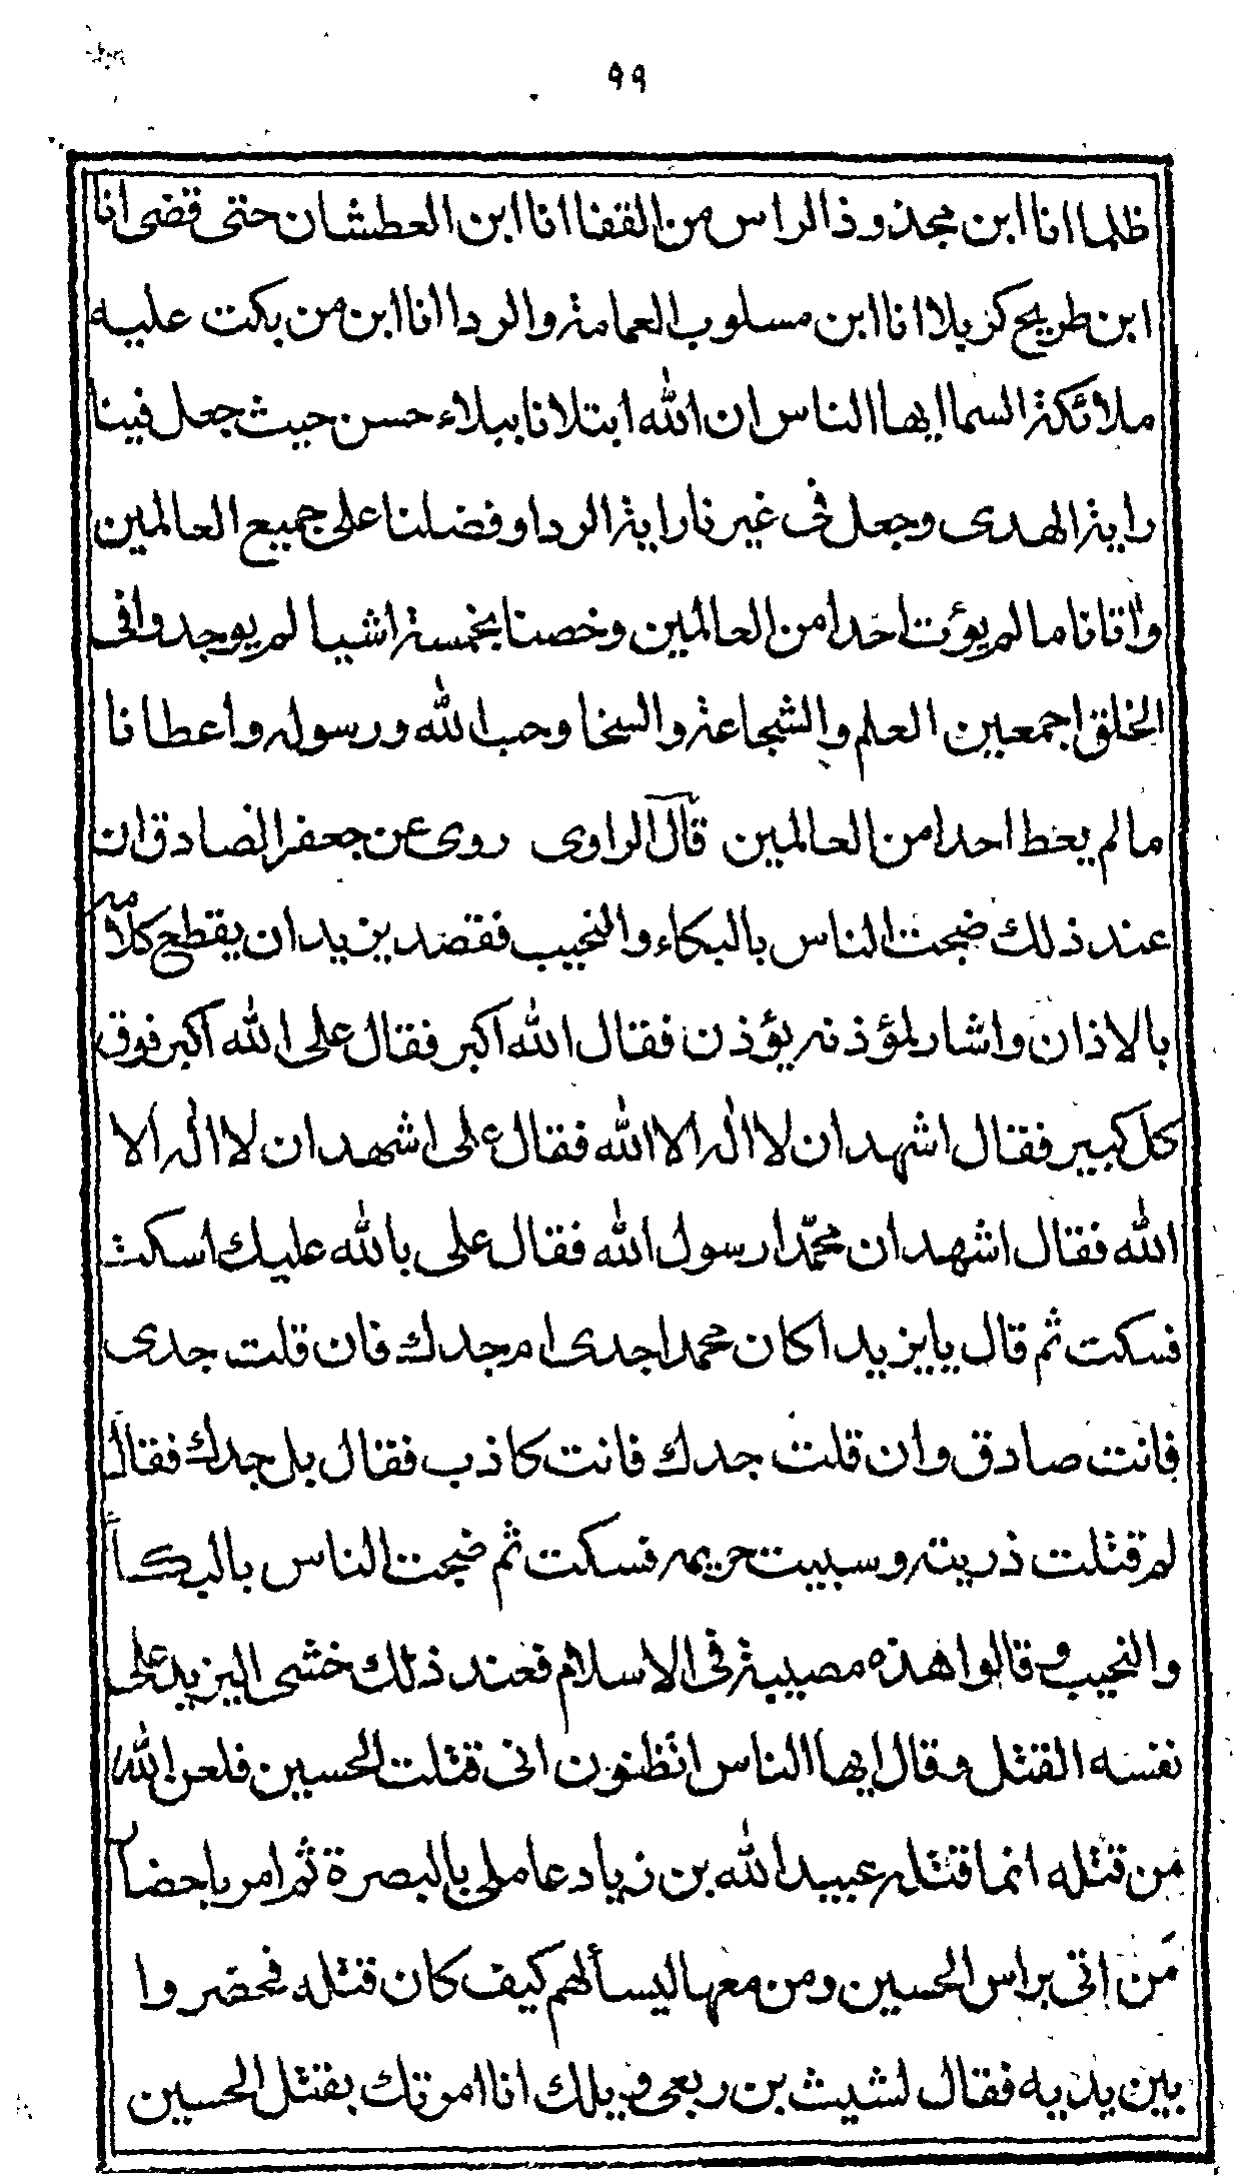 ٩٩
ظلما انا ابن مجذوذ الراس من القفا انا ابن العطشان حتى قضى انا
ابن طريح كربلا انا ابن مسلوب العمامة والردا انا ابن من بكت عليه
ملائكة السما ايها الناس ان الله ابتلانا ببلاء حسن حيث جعل فينا
راية الهدى وجعل فى غيرنا راية الردا وفضلنا على جميع العالمين
واتانا ما لم يؤت احدا من العالمين وخصنا بخمسة اشيا لم يوجدوا فى
الخلق اجمعين العلم والشجاعة والسخا وحب الله ورسوله واعطانا
ما لم يعط احدا من العالمين قال الراوى روى عن جعفر الصادق ان
عند ذلك ضجت الناس بالبكاء والنحيب فقصد يزيد ان يقطع كلامه
بالاذان واشار لمؤذنه يؤذن فقال الله اكبر فقال على الله اكبر فوق
كل كبير فقال اشهد ان لا اله الا الله فقال على اشهد ان لا اله الا
الله فقال اشهد ان محمّدا رسول الله فقال على بالله عليك اسكت
فسكت ثم قال يايزيد اكان محمدا جدى ام جدك فان قلت جدى
فانت صادق وان قلت جدك فانت كاذب فقال بل جدك فقال
لم قتلت ذريته وسبيت حريمه فسكت ثم ضجت الناس بالبكا
والنحيب وقالوا هذه مصيبة فى الاسلام فعند ذلك خشى اليزيد على
نفسه القتل وقال ايها الناس اتظنون انى قتلت الحسين فلعن الله
من قتله انما قتله عبيد الله بن زياد عاملى بالبصرة ثم امر باحضار
من اتى براس الحسين ومن معها ليسألهم كيف كان قتله فحضروا
بين يديه فقال لشيث بن ربعى ويلك انا امرتك بقتل الحسين